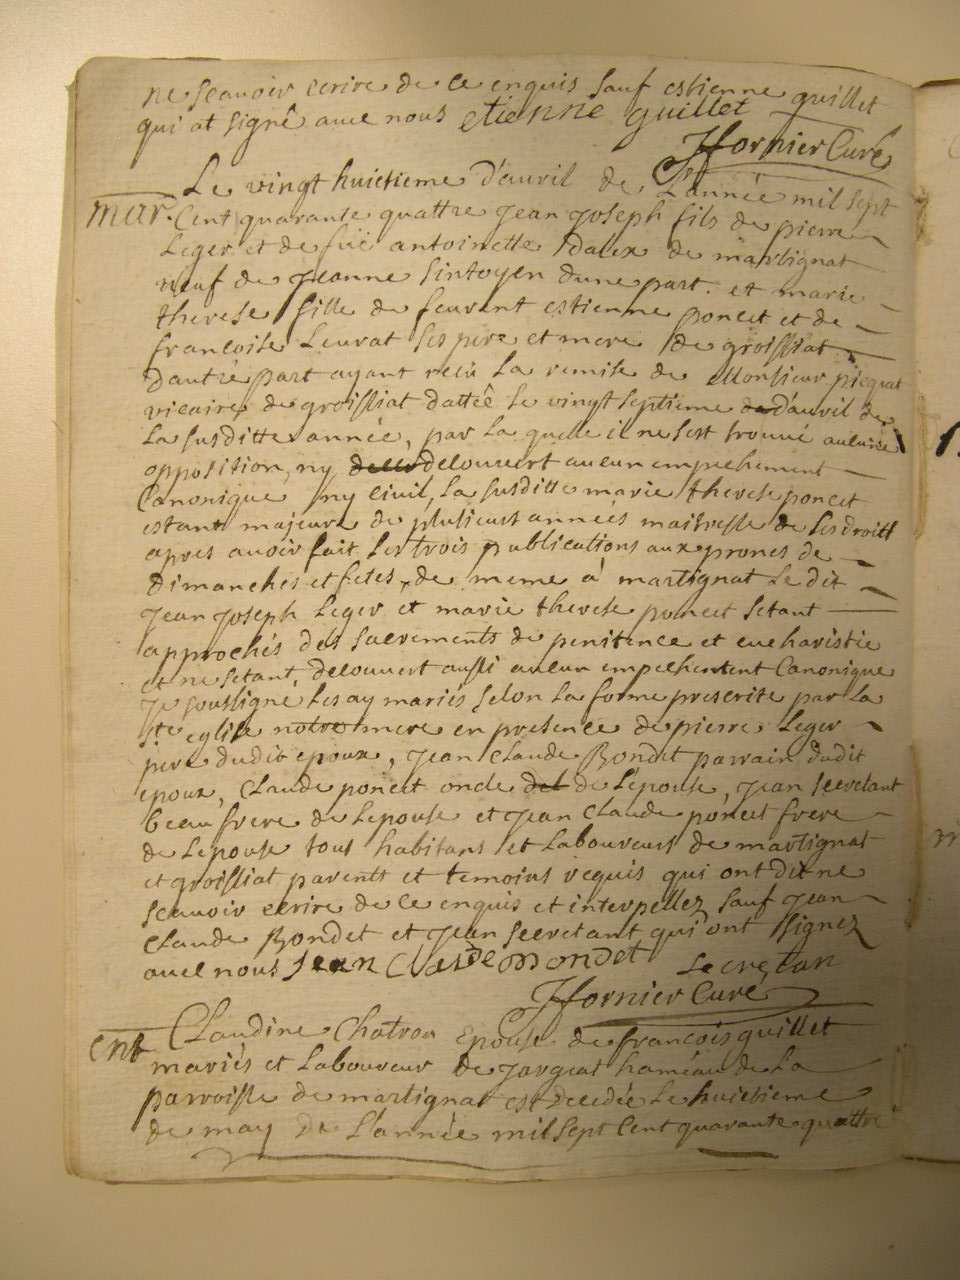 ne scavoir ecrire de ce enquis sauf estienne guillet
qui at signé avec nous etienne guillet
JJfornier Curé
Le vingt huictieme d'avril de L'année mil sept
mar. Cent quarante quattre Jean Joseph fils de pierre
Leger et de füe antoinette dalex de martignat
veuf de Jeanne Sintoyen dune part. et marie
therese fille de feu vent estienne poncet et de
francoise Leurat ses pere et mere de groissiat
dautre part ayant reçu La remise de Monsieur picquat
vicaire de groissiat dattêe Le vingt septieme de d'avril de
La susditte année, par La quelle il ne sest trouvé aucune
opposition, ny decouvert aucun empechement
Canonique ny Civil, La susditte marie therese poncet
estant majeure de plusieurs années maitresse de ses droitt
apres avoir fait Les trois publications aux prones de
dimanches et fetes, de meme à martignat Le dit
Jean Joseph Leger et marie therese poncet setant
approchés des sacrements de penitence et eucharistie
et ne setant decouvert aussi aucun empechement Canonique
Je soussigné Les ay mariés selon La forme prescrite par La
ste eglise notre mere en presence de pierre Leger
pere dudit epoux, Jean Claude Bondet parrain dudit
epoux, Claude poncet oncle del de Lepouse, Jean secretant
beau frere de Lepouse et Jean Claude poncet frere
de Lepouse tous habitans et Laboureurs de martignat
et groissiat parents et temoins requis qui ont dit ne
scavoir ecrire de ce enquis et interpellez sauf Jean
Claude Bondet et Jean secretant qui ont signez
avec nous Jean Claude mondet Secretan
JJfornier Curé
ent Claudine Chatron Epouse de francois guillet
mariés et Laboureur de Jargeat haméau de La
parroisse de martignat est decedée Le huictieme
de may de L'année mil sept Cent quarante quattre